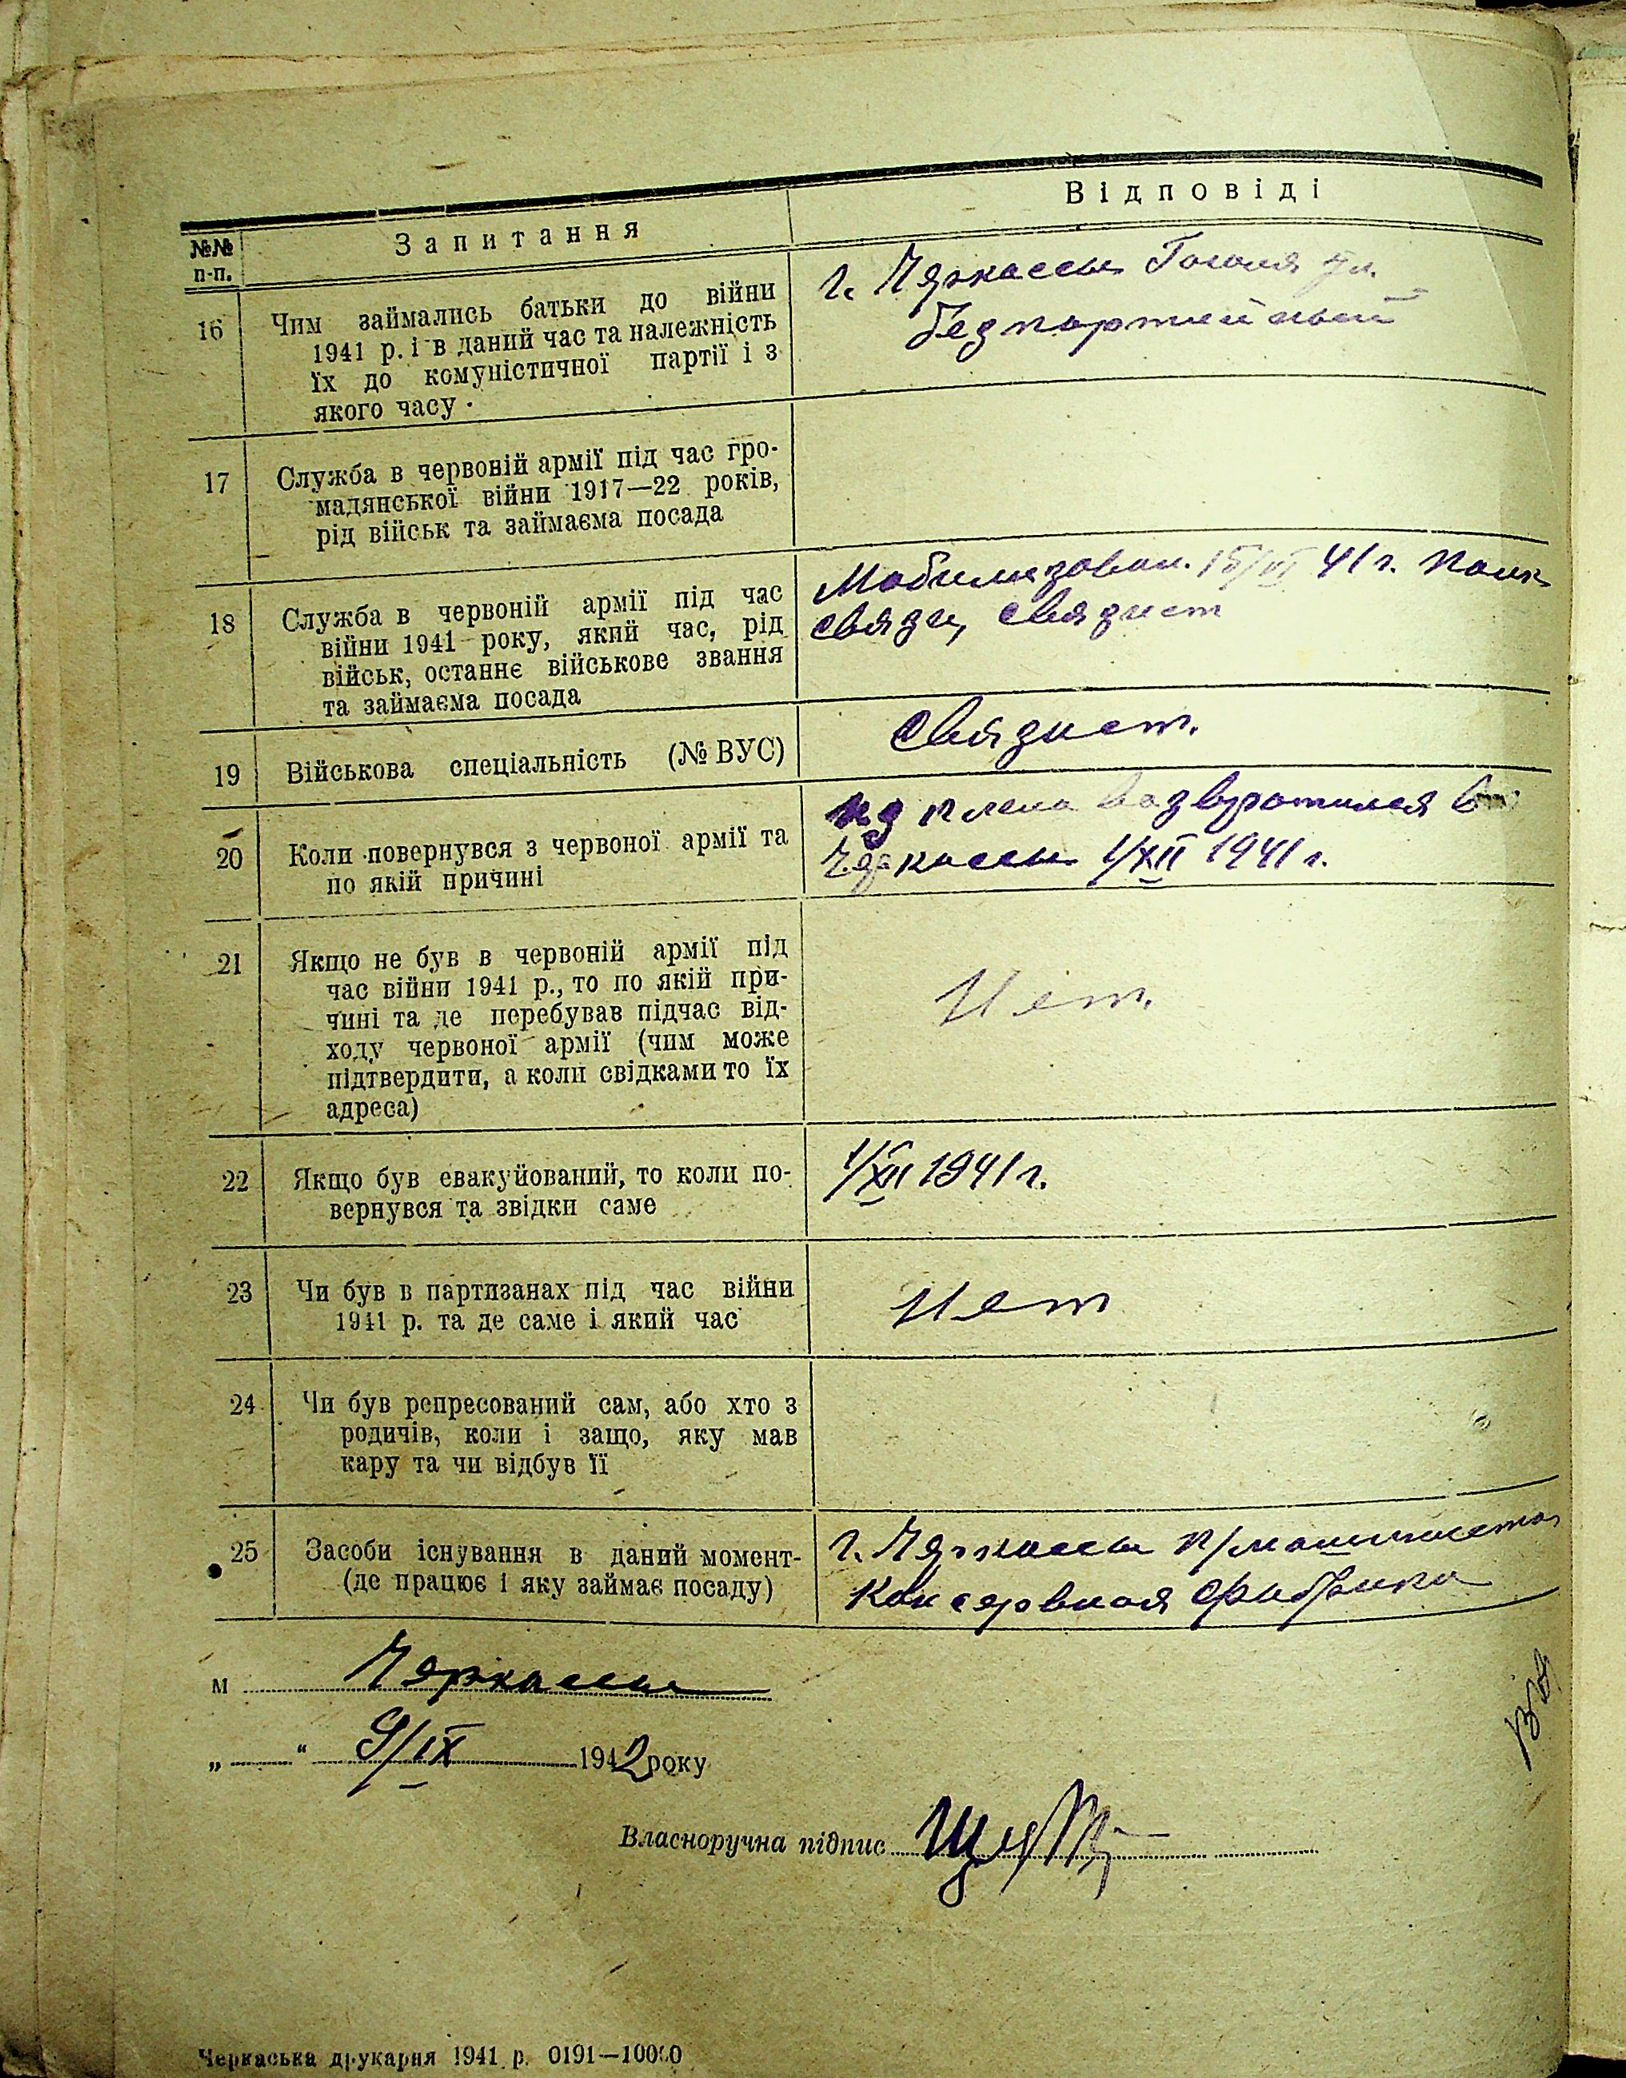 №№ п-п.
Запитання
Відповіді
16
Чим займались батьки до війни
1941 р. і в даний час та належність
їх до комуністичної партії і з
якого часу
г. Черкассы Гоголя ул.
беспартийный
17
Служба в червоній армії під час гро-
мадянської війни 1917—22 років,
рід військ та займаєма посада
18
Служба в червоній армії під час
війни 1941 року, який час, рід
військ, останнє військове звання
та займаєма посада
Мобилизован. 15/VI 41 г. полк
связи, связист
19
Військова спеціальність (№ ВУС)
Связист.
20
Коли повернувся з червоної армії та
по якій причині
из плена возвратился в
Черкассы 1/XII 1941 г.
21
Якщо не був в червоній армії під
час війни 1941 р., то по якій при-
чині та де перебував підчас від-
ходу червоної армії (чим може
підтвердити, а коли свідками то їх
адреса)
Нет.
22
Якщо був евакуйований, то коли по-
вернувся та звідки саме
1/XII 1941 г.
23
Чи був в партизанах під час війни
1941 р. та де саме і який час
Нет
24
Чи був репресований сам, або хто з
родичів, коли і защо, яку мав
кару та чи відбув її
25
Засоби існування в даний момент-
(де працює і яку займає посаду)
г. Черкассы п/машиниста
Консервная фабрика
м Черкассы
„ “ 9/IX 1942 року
Власноручна підпис
Черкаська друкарня 1941 р. 0191—10000